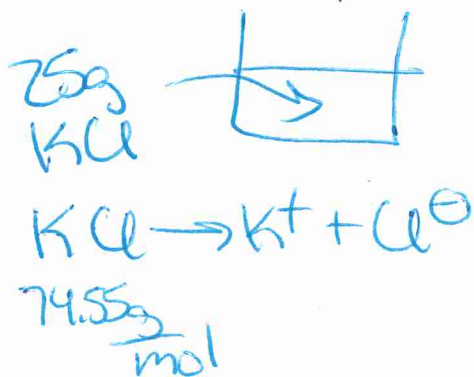 25g
KCl
KCl → K⁺ + Cl⊖
74.55g
mol